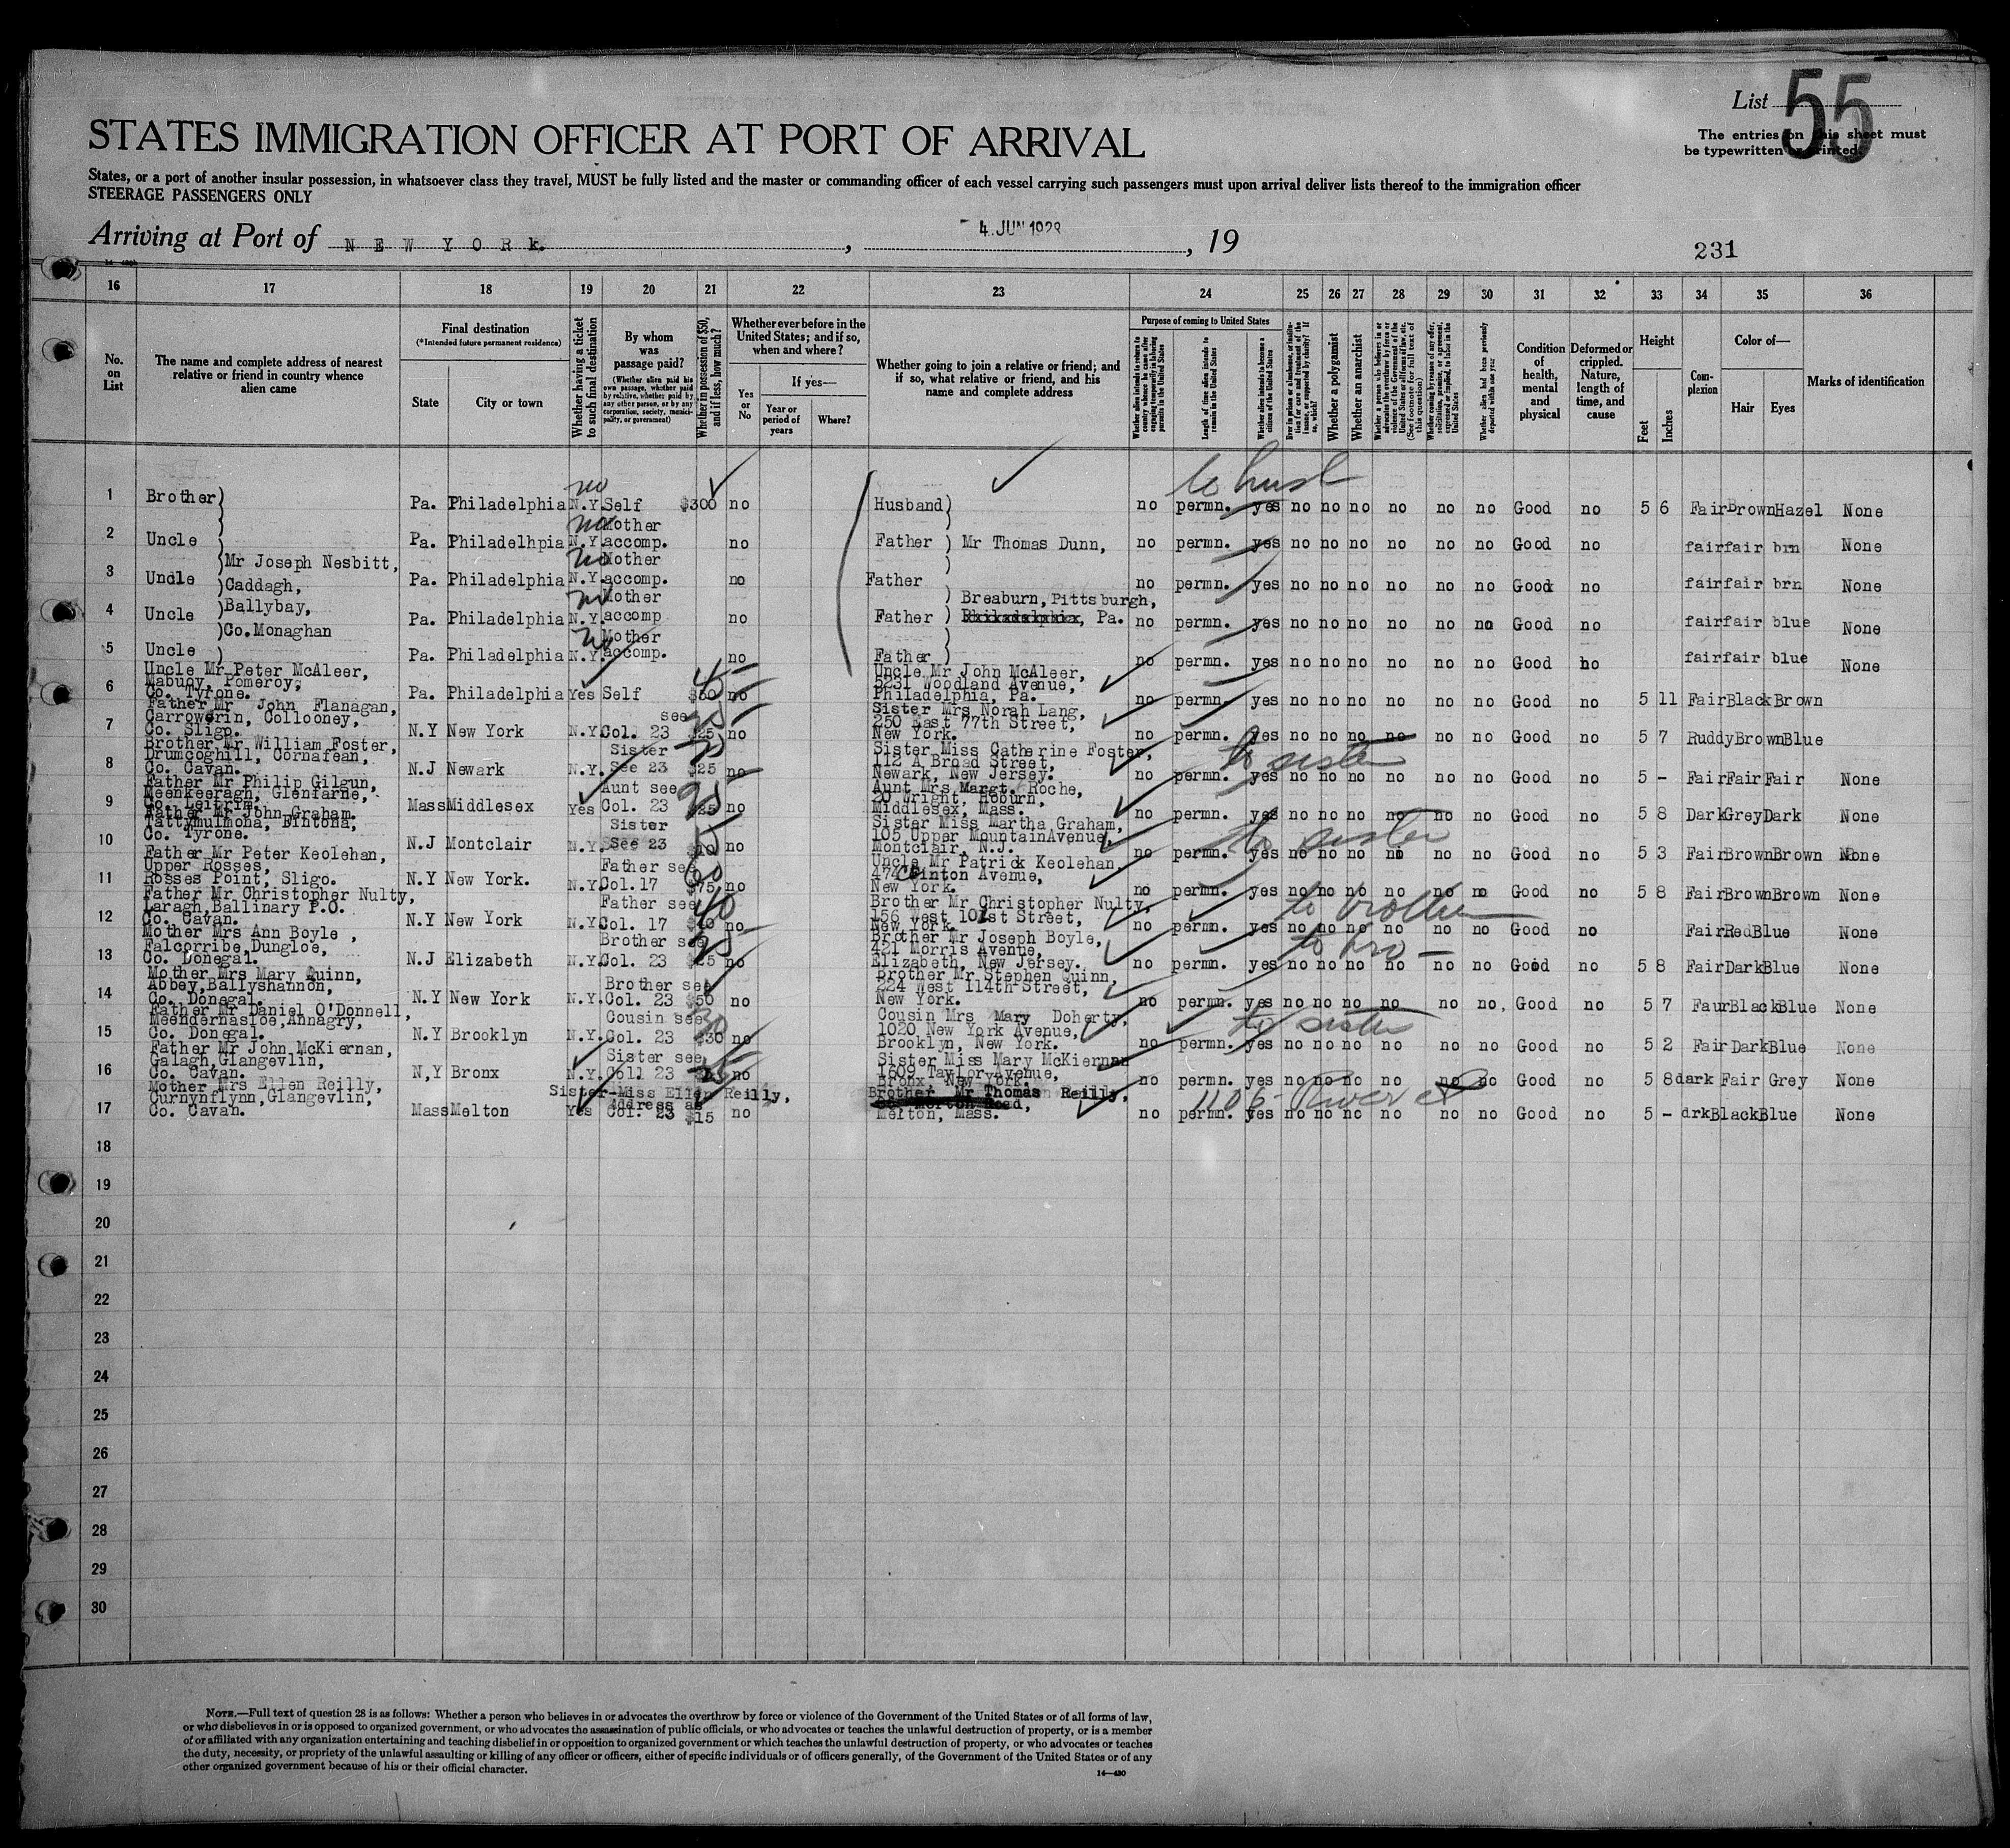 List 55
The entries on this sheet must
be typewritten or printed.
STATES IMMIGRATION OFFICER AT PORT OF ARRIVAL
States, or a port of another insular possession, in whatsoever class they travel, MUST be fully listed and the master or commanding officer of each vessel carrying such passengers must upon arrival deliver lists thereof to the immigration officer
STEERAGE PASSENGERS ONLY
Arriving at Port of NEW YORk. , 4 JUN 1928 , 19
231
16 17 18 19 20 21 22 23 24 25 26 27 28 29 30 31 32 33 34 35 36
No. on List
The name and complete address of nearest relative or friend in country whence alien came
Final destination
(*Intended future permanent residence)
State
City or town
Whether having a ticket to such final destination
By whom was passage paid?
(Whether alien paid his own passage, whether paid by relative, whether paid by any other person, or by any corporation, society, municipality, or government)
Whether in possession of $50, and if less, how much?
Whether ever before in the United States; and if so, when and where?
Yes or No
If yes—
Year or period of years
Where?
Whether going to join a relative or friend; and if so, what relative or friend, and his name and complete address
Purpose of coming to United States
Length of time alien intends to remain in the United States
Whether alien intends to become a citizen of the United States
Whether a polygamist
Whether an anarchist
(See footnote for full text of this question)
Whether alien had been previously deported within one year
Condition of health, mental and physical
Deformed or crippled. Nature, length of time, and cause
Height
Feet
Inches
Complexion
Color of—
Hair
Eyes
Marks of identification
to husb
1 Brother) Pa. Philadelphia no N.Y. Self $300 no Husband) no permn. yes no no no no no no Good no 5 6 Fair Brown Hazel None
2 Uncle ) Pa. Philadelhpia no N.Y. Mother accomp. no Father ) Mr Thomas Dunn, no permn. yes no no no no no no Good no fair fair brn None
)Mr Joseph Nesbitt,
3 Uncle )Caddagh, Pa. Philadelphia no N.Y. Mother accomp. no Father no permn. yes no no no no no no Good no fair fair brn None
) Breaburn, Pittsburgh,
4 Uncle )Ballybay, Pa. Philadelphia no N.Y. Mother accomp no Father ) Philadelphia, Pa. no permn. yes no no no no no no Good no fair fair blue None
)Co.Monaghan
5 Uncle ) Pa. Philadelphia no N.Y. Mother accomp. no Father ) no permn. yes no no no no no no Good no fair fair blue None
Uncle Mr Peter McAleer, Uncle Mr John McAleer,
Mabuoy, Pomeroy, 5231 Woodland Avenue,
6 Co. Tyrone. Pa. Philadelphia Yes Self $50 no Philadelphia, Pa. no permn. yes no no no no no no Good no 5 11 Fair Black Brown
Father Mr John Flanagan, Sister Mrs Norah Lang,
Carrowerin, Collooney, see 250 East 77th Street,
7 Co. Sligo. N.Y New York N.Y. Col. 23 $25 no New York. no permn. yes no no no no no no Good no 5 7 Ruddy Brown Blue
Brother Mr William Foster, Sister Miss Catherine Foster,
Drumcoghill, Cornafean, Sister 112 A Broad Street, to sister
8 Co. Cavan. N.J Newark N.Y. See 23 $25 no Newark, New Jersey. no permn. yes no no no no no no Good no 5 - Fair Fair Fair None
Father Mr Philip Gilgun, Aunt Mrs Margt. Roche,
Meenkeeragh, Glenfarne, Aunt see 20 Wright, Woburn,
9 Co. Leitrim. Mass Middlesex Yes Col. 23 $25 no Middlesex, Mass. no permn. yes no no no no no no Good no 5 8 Dark Grey Dark None
Father Mr John Graham. Sister Miss Martha Graham,
Tattymulmona, Fintona, Sister 105 Upper MountainAvenue, to sister
10 Co. Tyrone. N.J Montclair N.Y. See 23 no Montclair, N.J. no permn. yes no no no no no no Good no 5 3 Fair Brown Brown None
Father Mr Peter Keolehan, Uncle Mr Patrick Keolehan,
Upper Rosses, Father see 474 Clinton Avenue,
11 Rosses Point, Sligo. N.Y New York. N.Y. Col.17 $75 no New York. no permn. yes no no no no no no Good no 5 8 Fair Brown Brown None
Father Mr Christopher Nulty, Brother Mr Christopher Nulty,
Laragh, Ballinary P.O. Father see 156 West 101st Street, to brother
12 Co. Cavan. N.Y New York N.Y. Col. 17 $40 no New York. no permn. yes no no no no no no Good no Fair Red Blue None
Mother Mrs Ann Boyle , Brother Mr Joseph Boyle,
Falcorribe, Dungloe, Brother see 421 Morris Avenue, to bro -
13 Co. Donegal. N.J Elizabeth N.Y. Col. 23 $25 no Elizabeth, New Jersey. no permn. yes no no no no no no Good no 5 8 Fair Dark Blue None
Mother Mrs Mary Quinn, Brother Mr Stephen Quinn,
Abbey, Ballyshannon, Brother see 224 West 114th Street,
14 Co. Donegal. N.Y New York N.Y. Col. 23 $50 no New York. no permn. yes no no no no no no, Good no 5 7 Faur Black Blue None
Father Mr Daniel O'Donnell, Cousin Mrs Mary Doherty,
Meendernasloe, Annagry, Cousin see 1020 New York Avenue, to sister
15 Co. Donegal. N.Y Brooklyn N.Y. Col. 23 $30 no Brooklyn, New York. no permn. yes no no no no no no Good no 5 2 Fair Dark Blue None
Father Mr John McKiernan, Sister Miss Mary McKiernan
Galagh, Glangevlin, Sister see 1609 Taylor Avenue,
16 Co. Cavan. N,Y Bronx N.Y. Coll 23 no Bronx, New York. no permn. yes no no no no no no Good no 5 8 dark Fair Grey None
Mother Mrs Ellen Reilly, Sister-Miss Ellen Reilly, Brother Mr Thomas Reilly,
Curnynflynn, Glangevlin, Address as Merton Road, 1106 River st
17 Co. Cavan. Mass Melton Yes Col. 23 $15 no Melton, Mass. no permn. yes no no no no no no Good no 5 - drk Black Blue None
18
19
20
21
22
23
24
25
26
27
28
29
30
NOTE.—Full text of question 28 is as follows: Whether a person who believes in or advocates the overthrow by force or violence of the Government of the United States or of all forms of law,
or who disbelieves in or is opposed to organized government, or who advocates the assassination of public officials, or who advocates or teaches the unlawful destruction of property, or is a member
of or affiliated with any organization entertaining and teaching disbelief in or opposition to organized government or which teaches the unlawful destruction of property, or who advocates or teaches
the duty, necessity, or propriety of the unlawful assaulting or killing of any officer or officers, either of specific individuals or of officers generally, of the Government of the United States or of any
other organized government because of his or their official character.
14—430